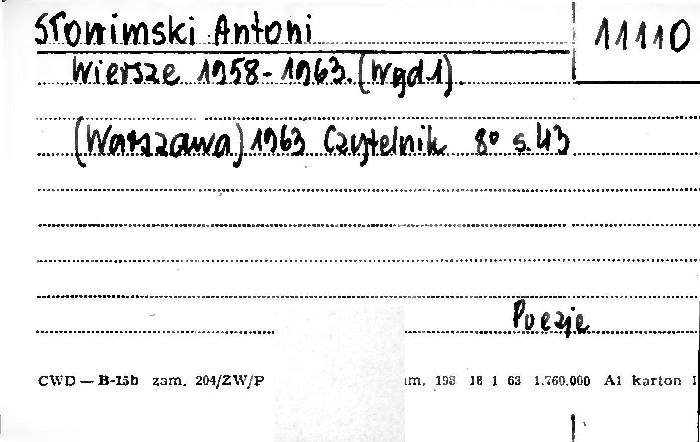 Słonimski Antoni 11110
Wiersze 1958-1963. (Wyd 1).
(Warszawa) 1963 Czytelnik 8° s. 43
Poezje
CWD — B-15b zam. 204/ZW/P m. 198 18 1 63 1.760.000 A1 karton I